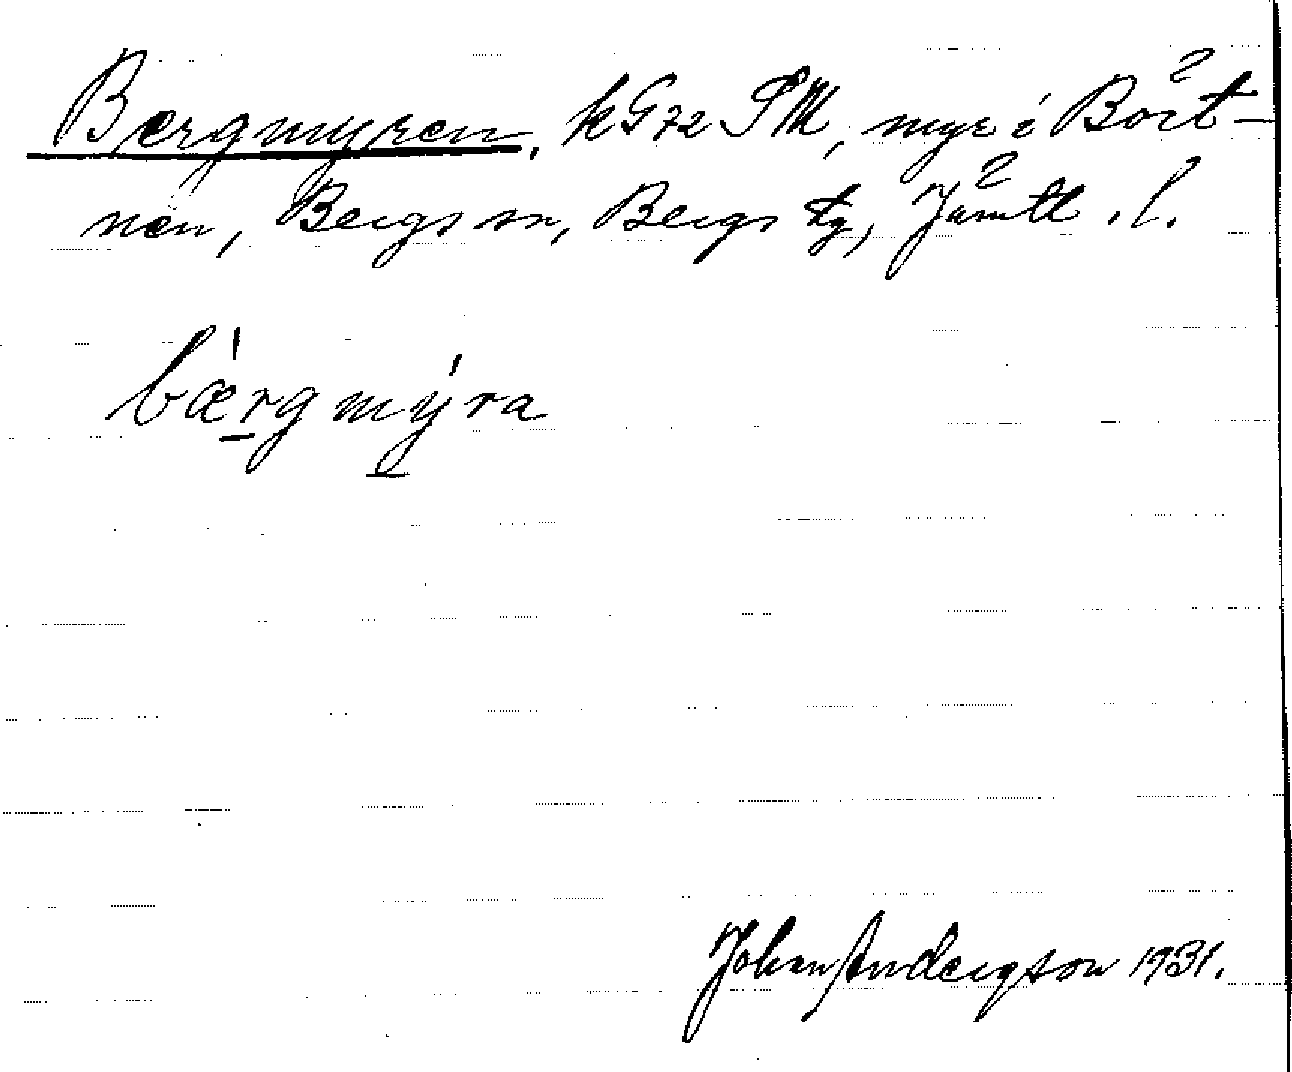 Bergmyren, kG72 SM, myr i Börtnen, Bergs sn, Bergs tg, Jämtl. l.
bærgmýra
Johan Anderson 1931.